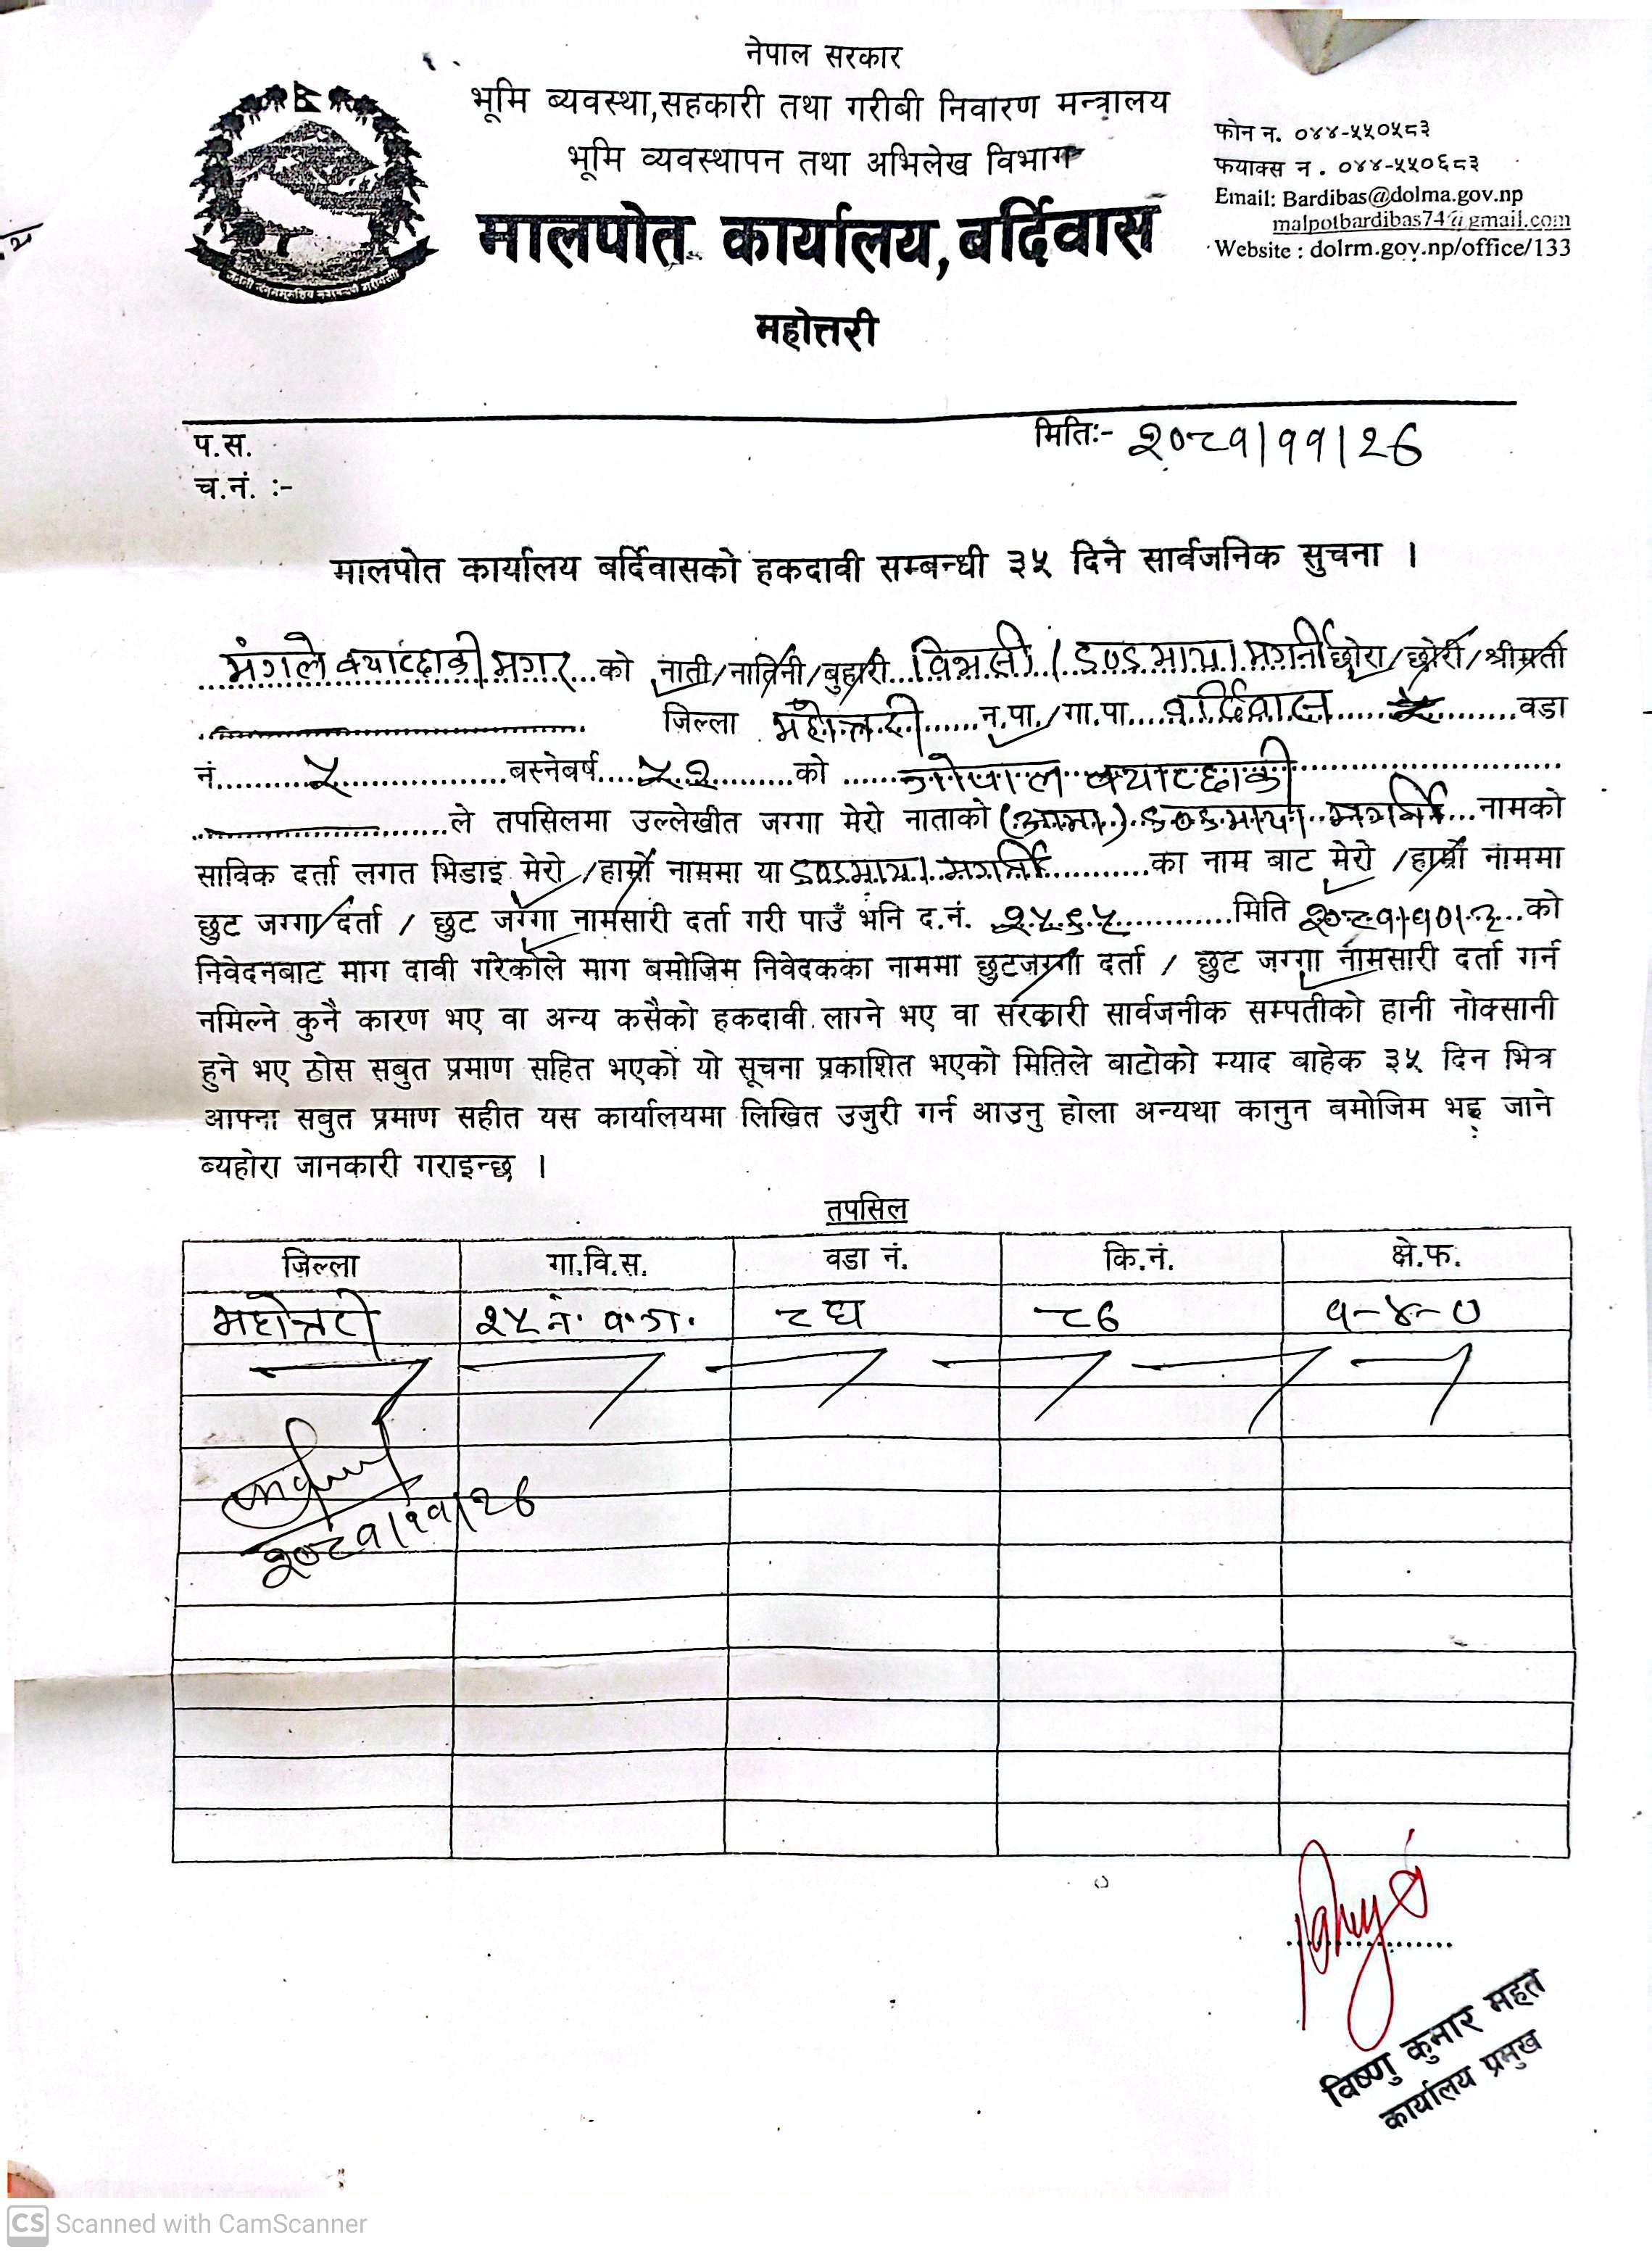 नेपाल सरकार
भूमि ब्यवस्था,सहकारी तथा गरीबी निवारण मन्त्रालय
भूमि व्यवस्थापन तथा अभिलेख विभाग
मालपोत कार्यालय,बर्दिवास
महोत्तरी
फोन न. ०४४-५५०५८३
फयाक्स न . ०४४-५५०६८३
Email: Bardibas@dolma.gov.np
malpotbardibas74@gmail.com
Website : dolrm.gov.np/office/133
प.स.
च.नं. :-
मितिः- २०८१/११/26
मालपोत कार्यालय बर्दिवासको हकदावी सम्बन्धी ३५ दिने सार्वजनिक सुचना ।
मंगले क्याच्छाकी मगर को नाती/नातिनी/बुहारी डण्डमाया मगर्नी छोरा/छोरी/श्रीमती
जिल्ला महोत्तरी न.पा./गा.पा. बर्दिवास वडा
नं. ५ बस्नेबर्ष ५२ को गोपाल क्याच्छाकी
ले तपसिलमा उल्लेखीत जग्गा मेरो नाताको (आमा) डण्डमाया मगर्नी नामको
साविक दर्ता लगत भिडाइ मेरो /हाम्रो नाममा या डण्डमाया मगर्नी का नाम बाट मेरो /हाम्रो नाममा
छुट जग्गा दर्ता / छुट जग्गा नामसारी दर्ता गरी पाउँ भनि द.नं. मिति २०८१।१०।२ को
निवेदनबाट माग दावी गरेकोले माग बमोजिम निवेदकका नाममा छुटजग्गा दर्ता / छुट जग्गा नामसारी दर्ता गर्न
नमिल्ने कुनै कारण भए वा अन्य कसैको हकदावी लाग्ने भए वा सरकारी सार्वजनीक सम्पतीको हानी नोक्सानी
हुने भए ठोस सबुत प्रमाण सहित भएको यो सूचना प्रकाशित भएको मितिले बाटोको म्याद बाहेक ३५ दिन भित्र
आफ्ना सबुत प्रमाण सहीत यस कार्यालयमा लिखित उजुरी गर्न आउनु होला अन्यथा कानुन बमोजिम भइ जाने
ब्यहोरा जानकारी गराइन्छ ।
तपसिल
जिल्ला गा.वि.स. वडा नं. कि.नं. क्षे.फ.
महोत्तरी २५ नं. व.ग. ८घ ८6 १-४-०
२०८१/११/26
विष्णु कुमार महत
कार्यालय प्रमुख
CS Scanned with CamScanner